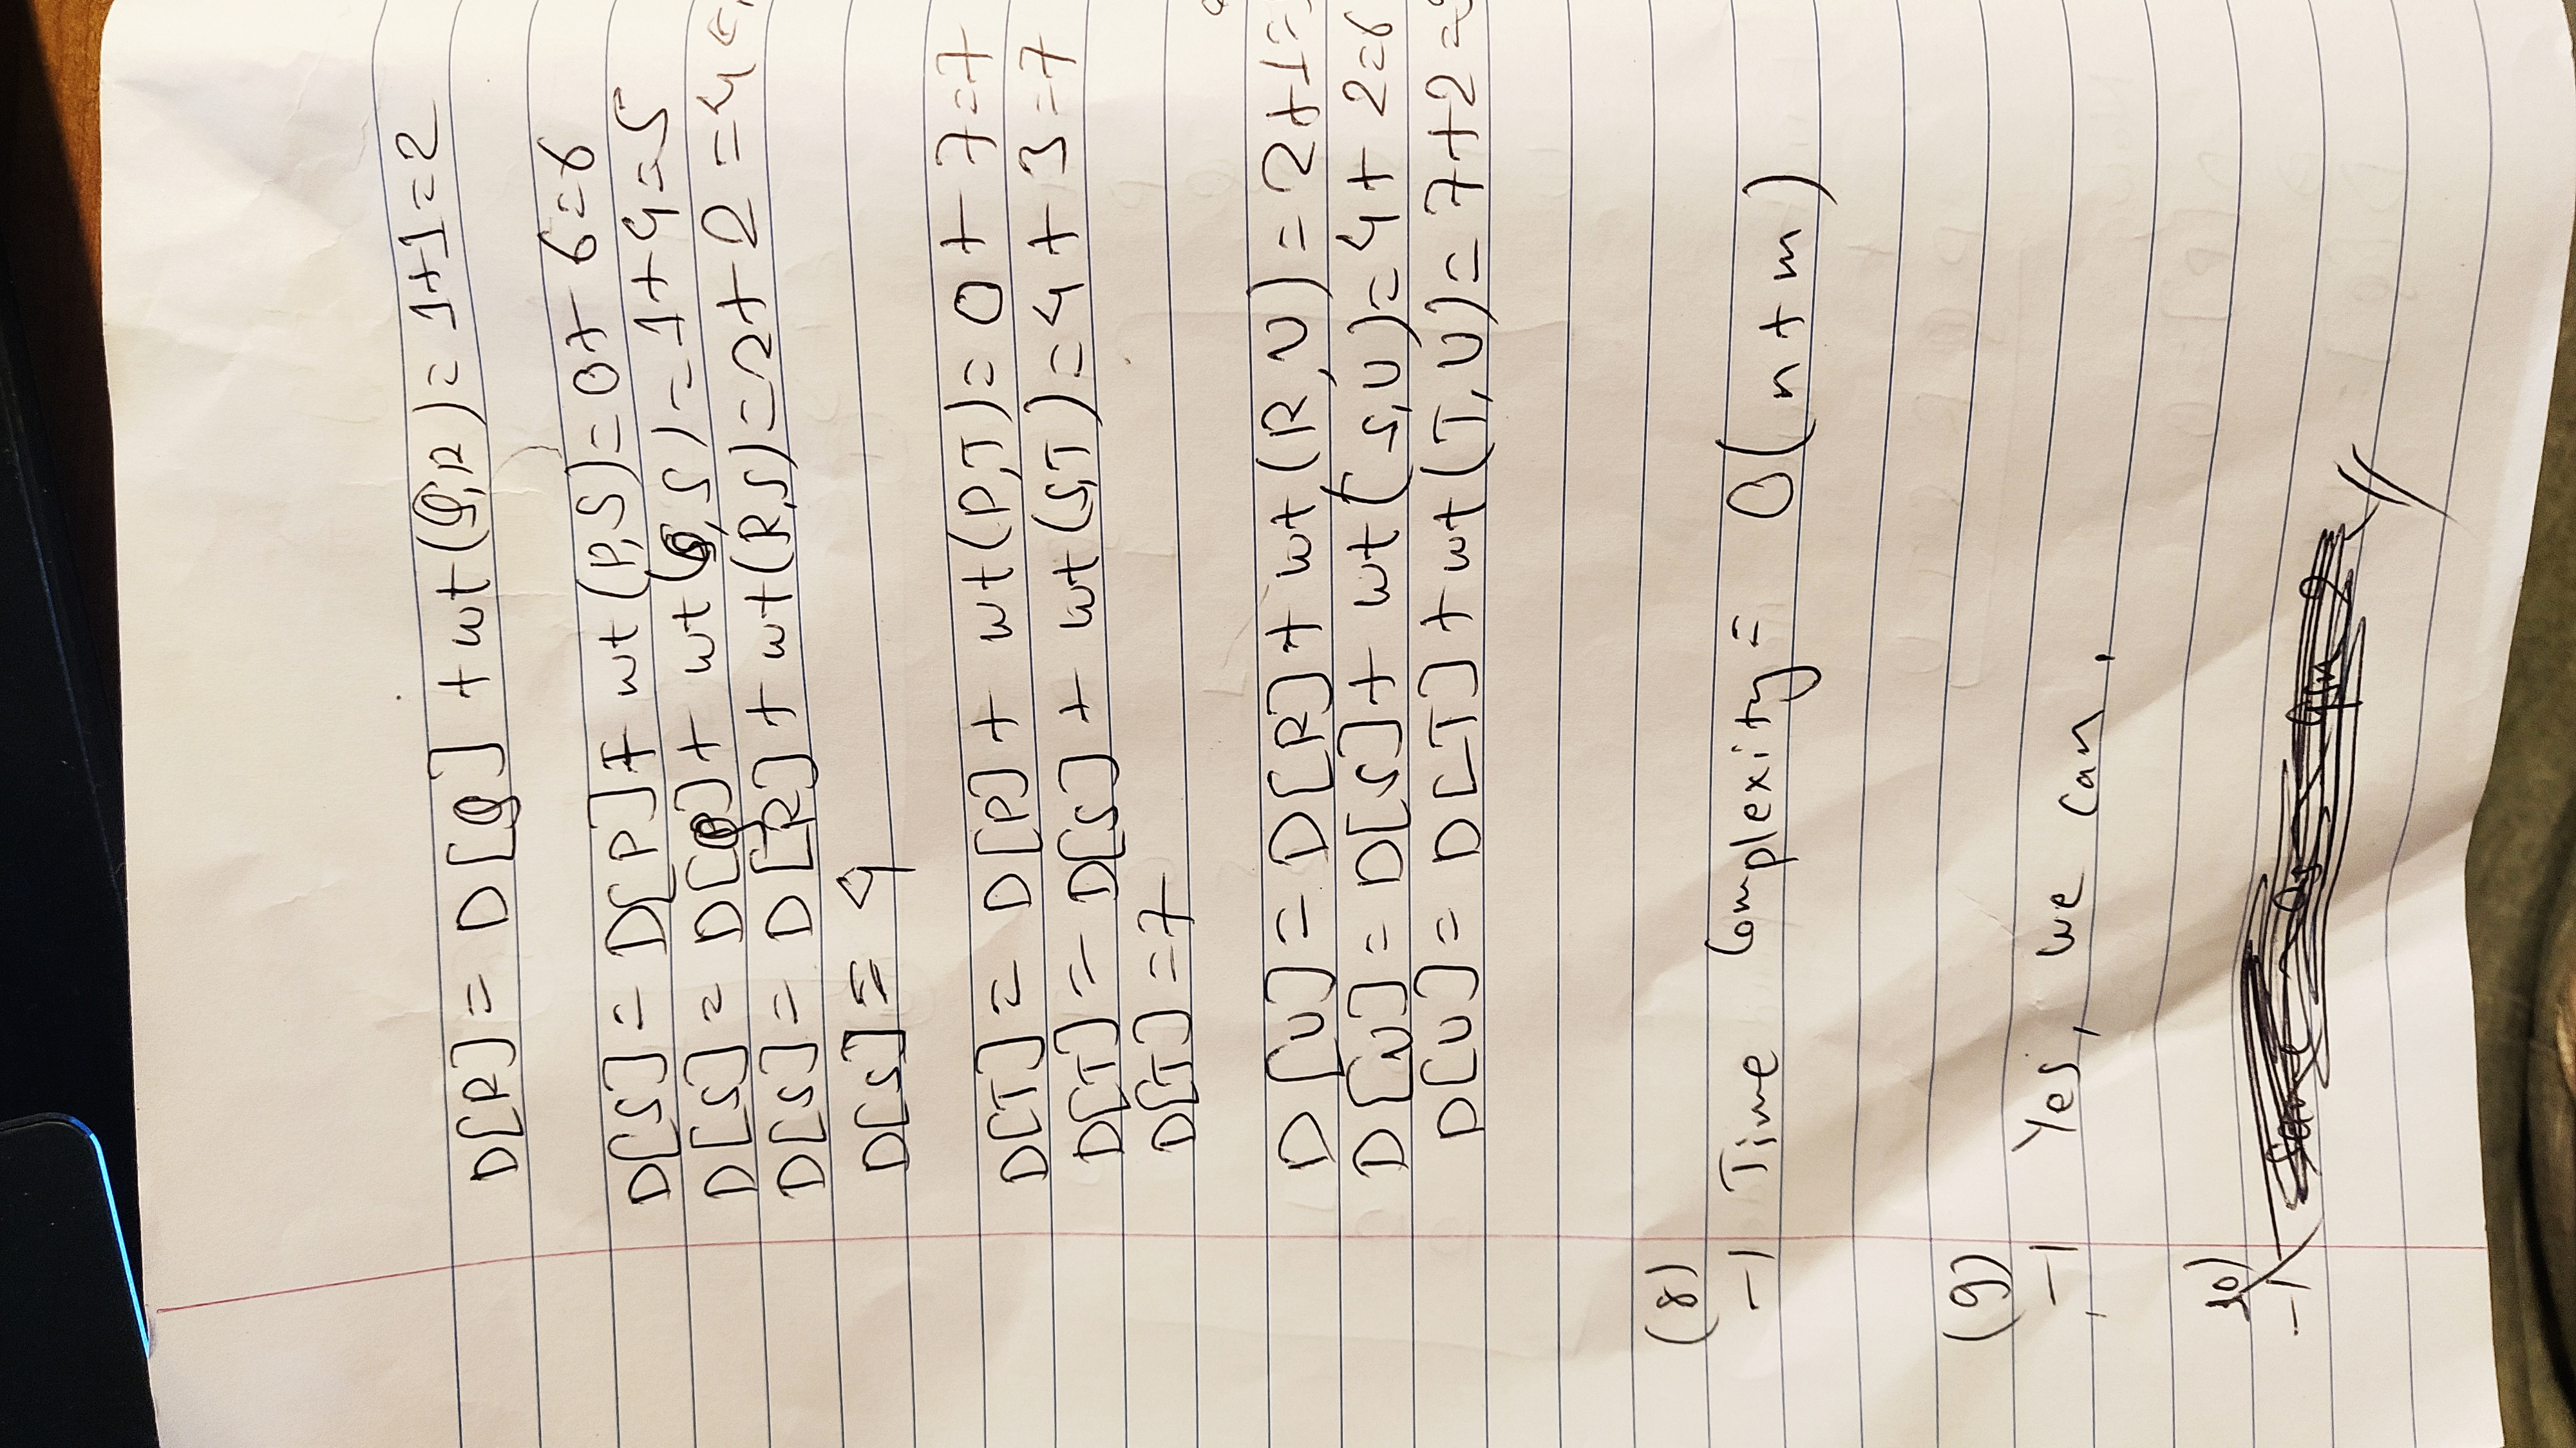 D[R] = D[Q] + wt(Q,R) = 1+1=2
D[S] = D[P] + wt(P,S) = 0+6=6
D[S] = D[Q] + wt(Q,S) = 1+4=5
D[S] = D[R] + wt(R,S) = 2+2=4
D[S] = 4
D[T] = D[P] + wt(P,T) = 0+7=7
D[T] = D[S] + wt(S,T) = 4+3=7
D[T] = 7
D[U] = D[R] + wt(R,U) = 2+1=
D[U] = D[S] + wt(S,U) = 4+2=6
D[U] = D[T] + wt(T,U) = 7+2=
(8)
→ Time Complexity = O(n+m)
(9)
→ Yes, we can.
10)